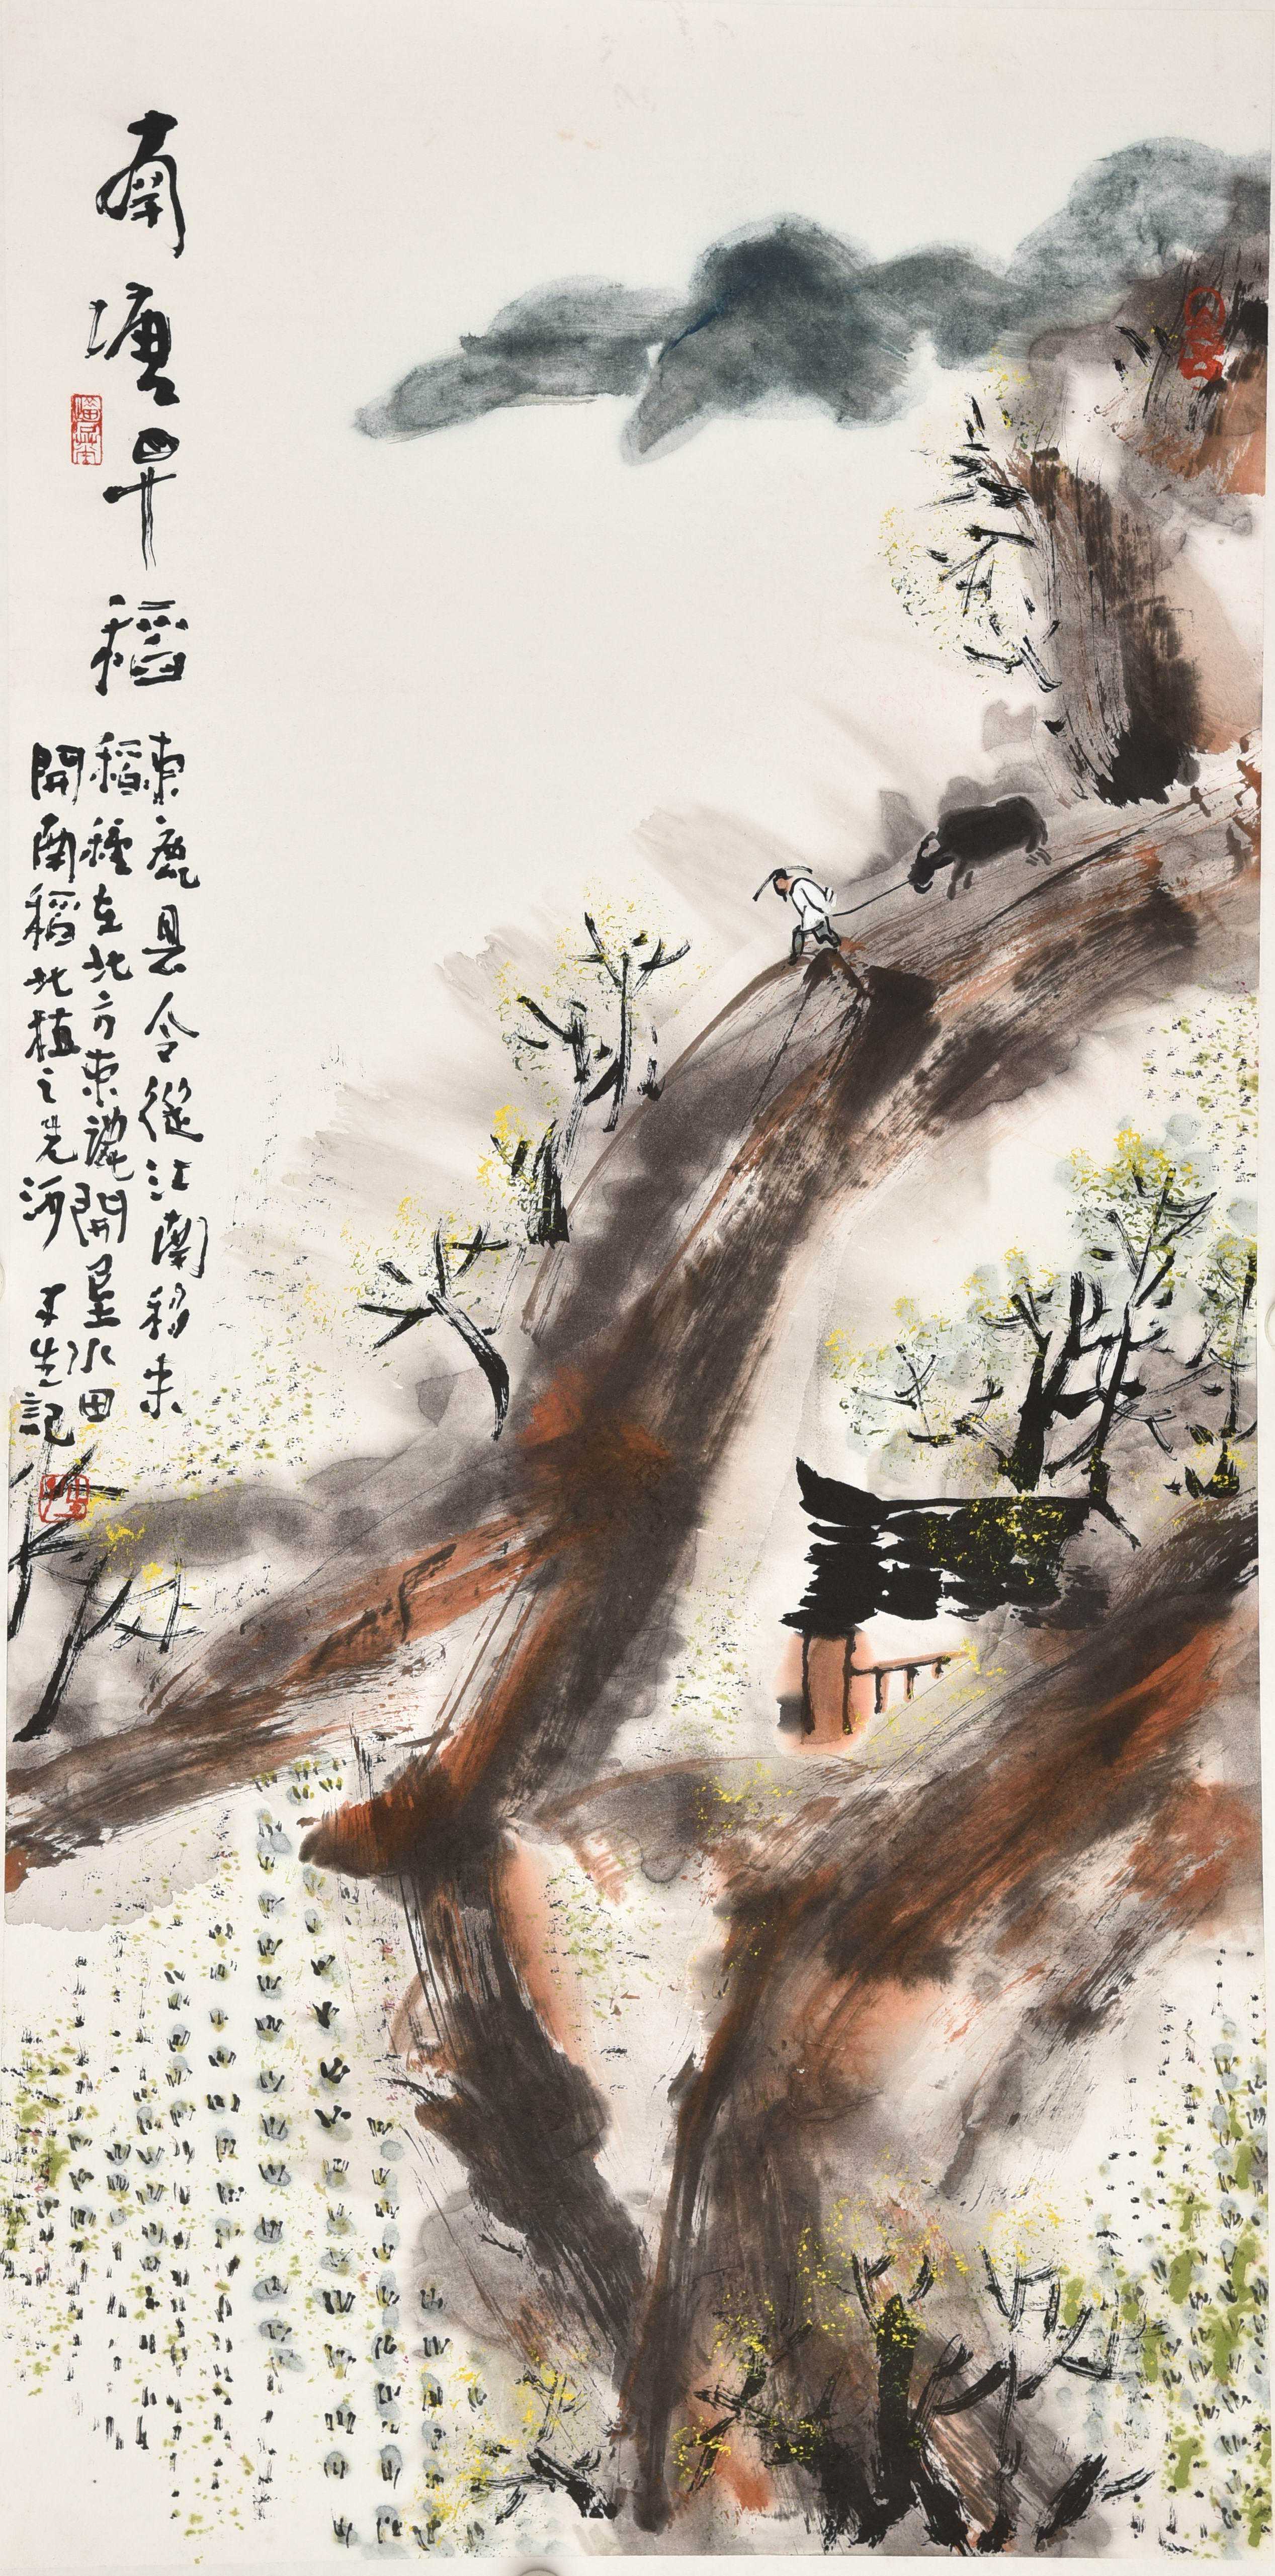 南塘早稻
束鹿县令從江南移来
稻種在北方束鹿開墾水田
開南稻北植之先河 才生記